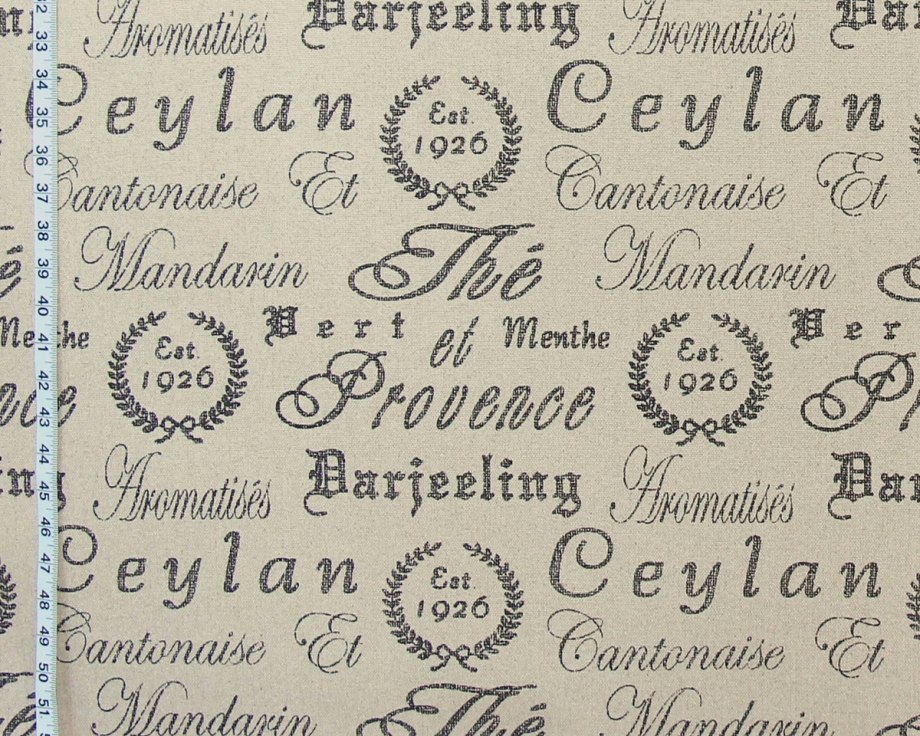 Aromatisés Darjeeling Aromatisés Da
Ceylan Est. 1926 Ceylan
Cantonaise Et Cantonaise Et
Mandarin Thé Mandarin
Menthe Est. 1926 Vert et Menthe Est. 1926 Ver
nce Provence P
ng Aromatisés Darjeeling Aromatisés Dar
Ceylan Est. 1926 Ceylan
Cantonaise Et Cantonaise Et
Mandarin Thé Mandarin
32 33 34 35 36 37 38 39 40 41 42 43 44 45 46 47 48 49 50 51